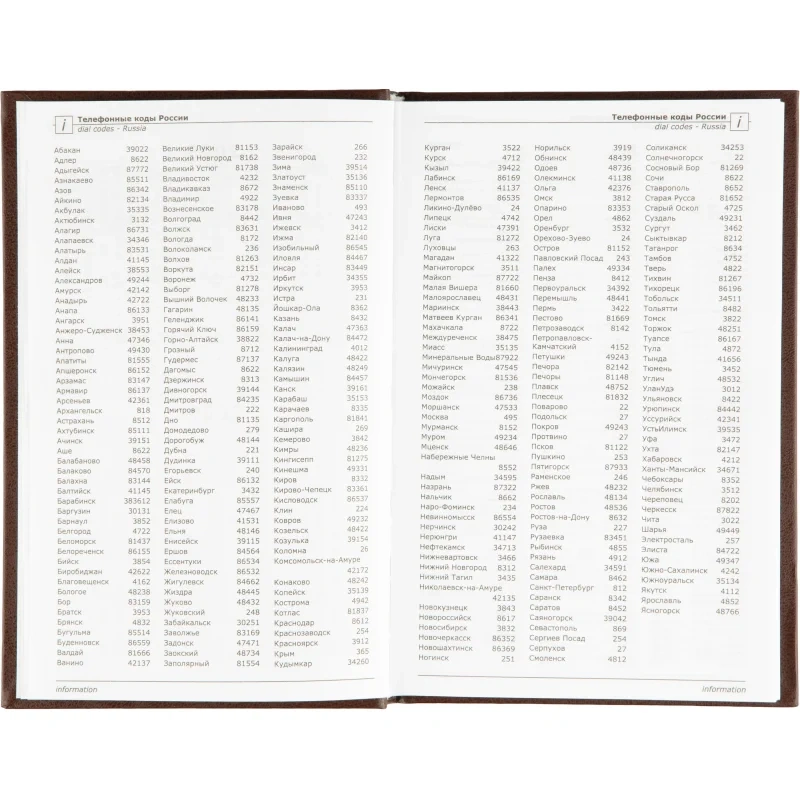 Телефонные коды России
dial codes - Russia
Абакан 39022
Адлер 8622
Адыгейск 87772
Азнакаево 85511
Азов 86342
Айкино 82134
Акбулак 35335
Актюбинск 3132
Алагир 86731
Алапаевск 34346
Алатырь 83531
Алдан 41145
Алейск 38553
Александров 49244
Амурск 42142
Анадырь 42722
Анапа 86133
Ангарск 3951
Анжеро-Судженск 38453
Анна 47346
Антропово 49430
Апатиты 81555
Апшеронск 86152
Арзамас 83147
Армавир 86137
Арсеньев 42361
Архангельск 818
Астрахань 8512
Ахтубинск 85111
Ачинск 39151
Аше 8622
Балабаново 48458
Балаково 84570
Балахна 83144
Балтийск 41145
Барабинск 383612
Баргузин 30131
Барнаул 3852
Белгород 4722
Беломорск 81437
Белореченск 86155
Бийск 3854
Биробиджан 42622
Благовещенск 4162
Бологое 48238
Бор 83159
Братск 3953
Брянск 4832
Бугульма 85514
Буденновск 86559
Валдай 81666
Ванино 42137
Великие Луки 81153
Великий Новгород 8162
Великий Устюг 81738
Владивосток 4232
Владикавказ 8672
Владимир 4922
Вознесенский 83178
Волгоград 8442
Волжск 83631
Вологда 8172
Волоколамск 236
Волхов 81263
Воркута 82151
Воронеж 4732
Выборг 81278
Вышний Волочек 48233
Гагарин 48135
Геленджик 86141
Горячий Ключ 86159
Горно-Алтайск 38822
Грозный 8712
Гудермес 87137
Дагомыс 8622
Дзержинск 8313
Дивногорск 39144
Дмитровград 84235
Дмитров 222
Дно 81135
Домодедово 279
Дорогобуж 48144
Дубна 221
Дудинка 39111
Егорьевск 240
Ейск 86132
Екатеринбург 3432
Елабуга 85557
Елец 47467
Елизово 41531
Ельня 48146
Енисейск 39115
Ершов 84564
Ессентуки 86534
Железноводск 86532
Жигулевск 84662
Жиздра 48445
Жуково 48432
Жуковский 248
Забайкальск 30251
Заволжье 83169
Задонск 47471
Заокский 48734
Заполярный 81554
Зарайск 266
Звенигород 232
Зима 39514
Златоуст 35136
Знаменск 85110
Зуевка 83337
Иваново 493
Ивня 47243
Ижевск 3412
Ижма 82140
Изобильный 86545
Иловля 84467
Инсар 83449
Ирбит 34355
Иркутск 3953
Истра 231
Йошкар-Ола 8362
Казань 8432
Калач 47363
Калач-на-Дону 84472
Калининград 4012
Калуга 48422
Калязин 48249
Камышин 84457
Канск 39161
Карабаш 35153
Карачаев 8335
Каргополь 81841
Кашира 269
Кемерово 3842
Кимры 48236
Кингисепп 81275
Кинешма 49331
Киров 8332
Кирово-Чепецк 83361
Кисловодск 86537
Клин 224
Ковров 49232
Козельск 48422
Козулька 39154
Коломна 26
Комсомольск-на-Амуре
42172
Конаково 48242
Копейск 35139
Кострома 4942
Котлас 81837
Краснодар 8612
Краснозаводск 254
Красноярск 3912
Крым 365
Кудымкар 34260
information
Телефонные коды России
dial codes - Russia
Курган 3522
Курск 4712
Кызыл 39422
Лабинск 86169
Ленск 41137
Лермонтов 86535
Ликино-Дулёво 24
Липецк 4742
Лиски 47391
Луга 81272
Луховицы 263
Магадан 41322
Магнитогорск 3511
Майкоп 87722
Малая Вишера 81660
Малоярославец 48431
Мариинск 38443
Матвеев Курган 86341
Махачкала 8722
Междуреченск 38475
Миасс 35135
Минеральные Воды 87922
Мичуринск 47545
Мончегорск 81536
Можайск 238
Моздок 86736
Моршанск 47533
Москва 495
Мурманск 8152
Муром 49234
Мценск 48646
Набережные Челны
8552
Надым 34595
Назрань 87322
Нальчик 8662
Наро-Фоминск 234
Невинномысск 86554
Нерчинск 30242
Нерюнгри 41147
Нефтекамск 34713
Нижневартовск 3466
Нижний Новгород 8312
Нижний Тагил 3435
Николаевск-на-Амуре
42135
Новокузнецк 3843
Новороссийск 8617
Новосибирск 3832
Новочеркасск 86352
Новошахтинск 86369
Ногинск 251
Норильск 3919
Обнинск 48439
Одоев 48736
Олекминск 41138
Ольга 42376
Омск 3812
Опарино 83353
Орел 4862
Оренбург 3532
Орехово-Зуево 24
Остров 81152
Павловский Посад 243
Палех 49334
Пенза 8412
Первоуральск 34392
Перемышль 48441
Пермь 3422
Пестово 81669
Петрозаводск 8142
Петропавловск-
Камчатский 4152
Петушки 49243
Печора 82142
Печоры 81148
Плавск 48752
Плесецк 81832
Поварово 22
Подольск 27
Покров 49243
Протвино 27
Псков 81122
Пушкино 253
Пятигорск 87933
Раменское 246
Ржев 48232
Рославль 48134
Ростов 48536
Ростов-на-Дону 8632
Руза 227
Рузаевка 83451
Рыбинск 4855
Рязань 4912
Салехард 34591
Самара 8462
Санкт-Петербург 812
Саранск 8342
Саратов 8452
Саяногорск 39042
Севастополь 869
Сергиев Посад 254
Серпухов 27
Смоленск 4812
Соликамск 34253
Солнечногорск 22
Сосновый Бор 81269
Сочи 8622
Ставрополь 8652
Старая Русса 81652
Старый Оскол 4725
Суздаль 49231
Сургут 3462
Сыктывкар 8212
Таганрог 8634
Тамбов 4752
Тверь 4822
Тихвин 81267
Тихорецк 86196
Тобольск 34511
Тольятти 8482
Томск 3822
Торжок 48251
Туапсе 86167
Тула 4872
Тында 41656
Тюмень 3452
Углич 48532
УланУдэ 3012
Ульяновск 8422
Урюпинск 84442
Уссурийск 42341
УстьИлимск 39535
Уфа 3472
Ухта 82147
Хабаровск 4212
Ханты-Мансийск 34671
Чебоксары 8352
Челябинск 3512
Череповец 8202
Черкесск 87822
Чита 3022
Шарья 49449
Электросталь 257
Элиста 84722
Южа 49347
Южно-Сахалинск 4242
Южноуральск 35134
Якутск 4112
Ярославль 4852
Ясногорск 48766
information